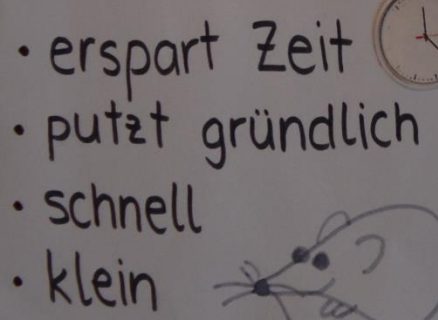 · erspart Zeit
· putzt gründlich
· schnell
· klein